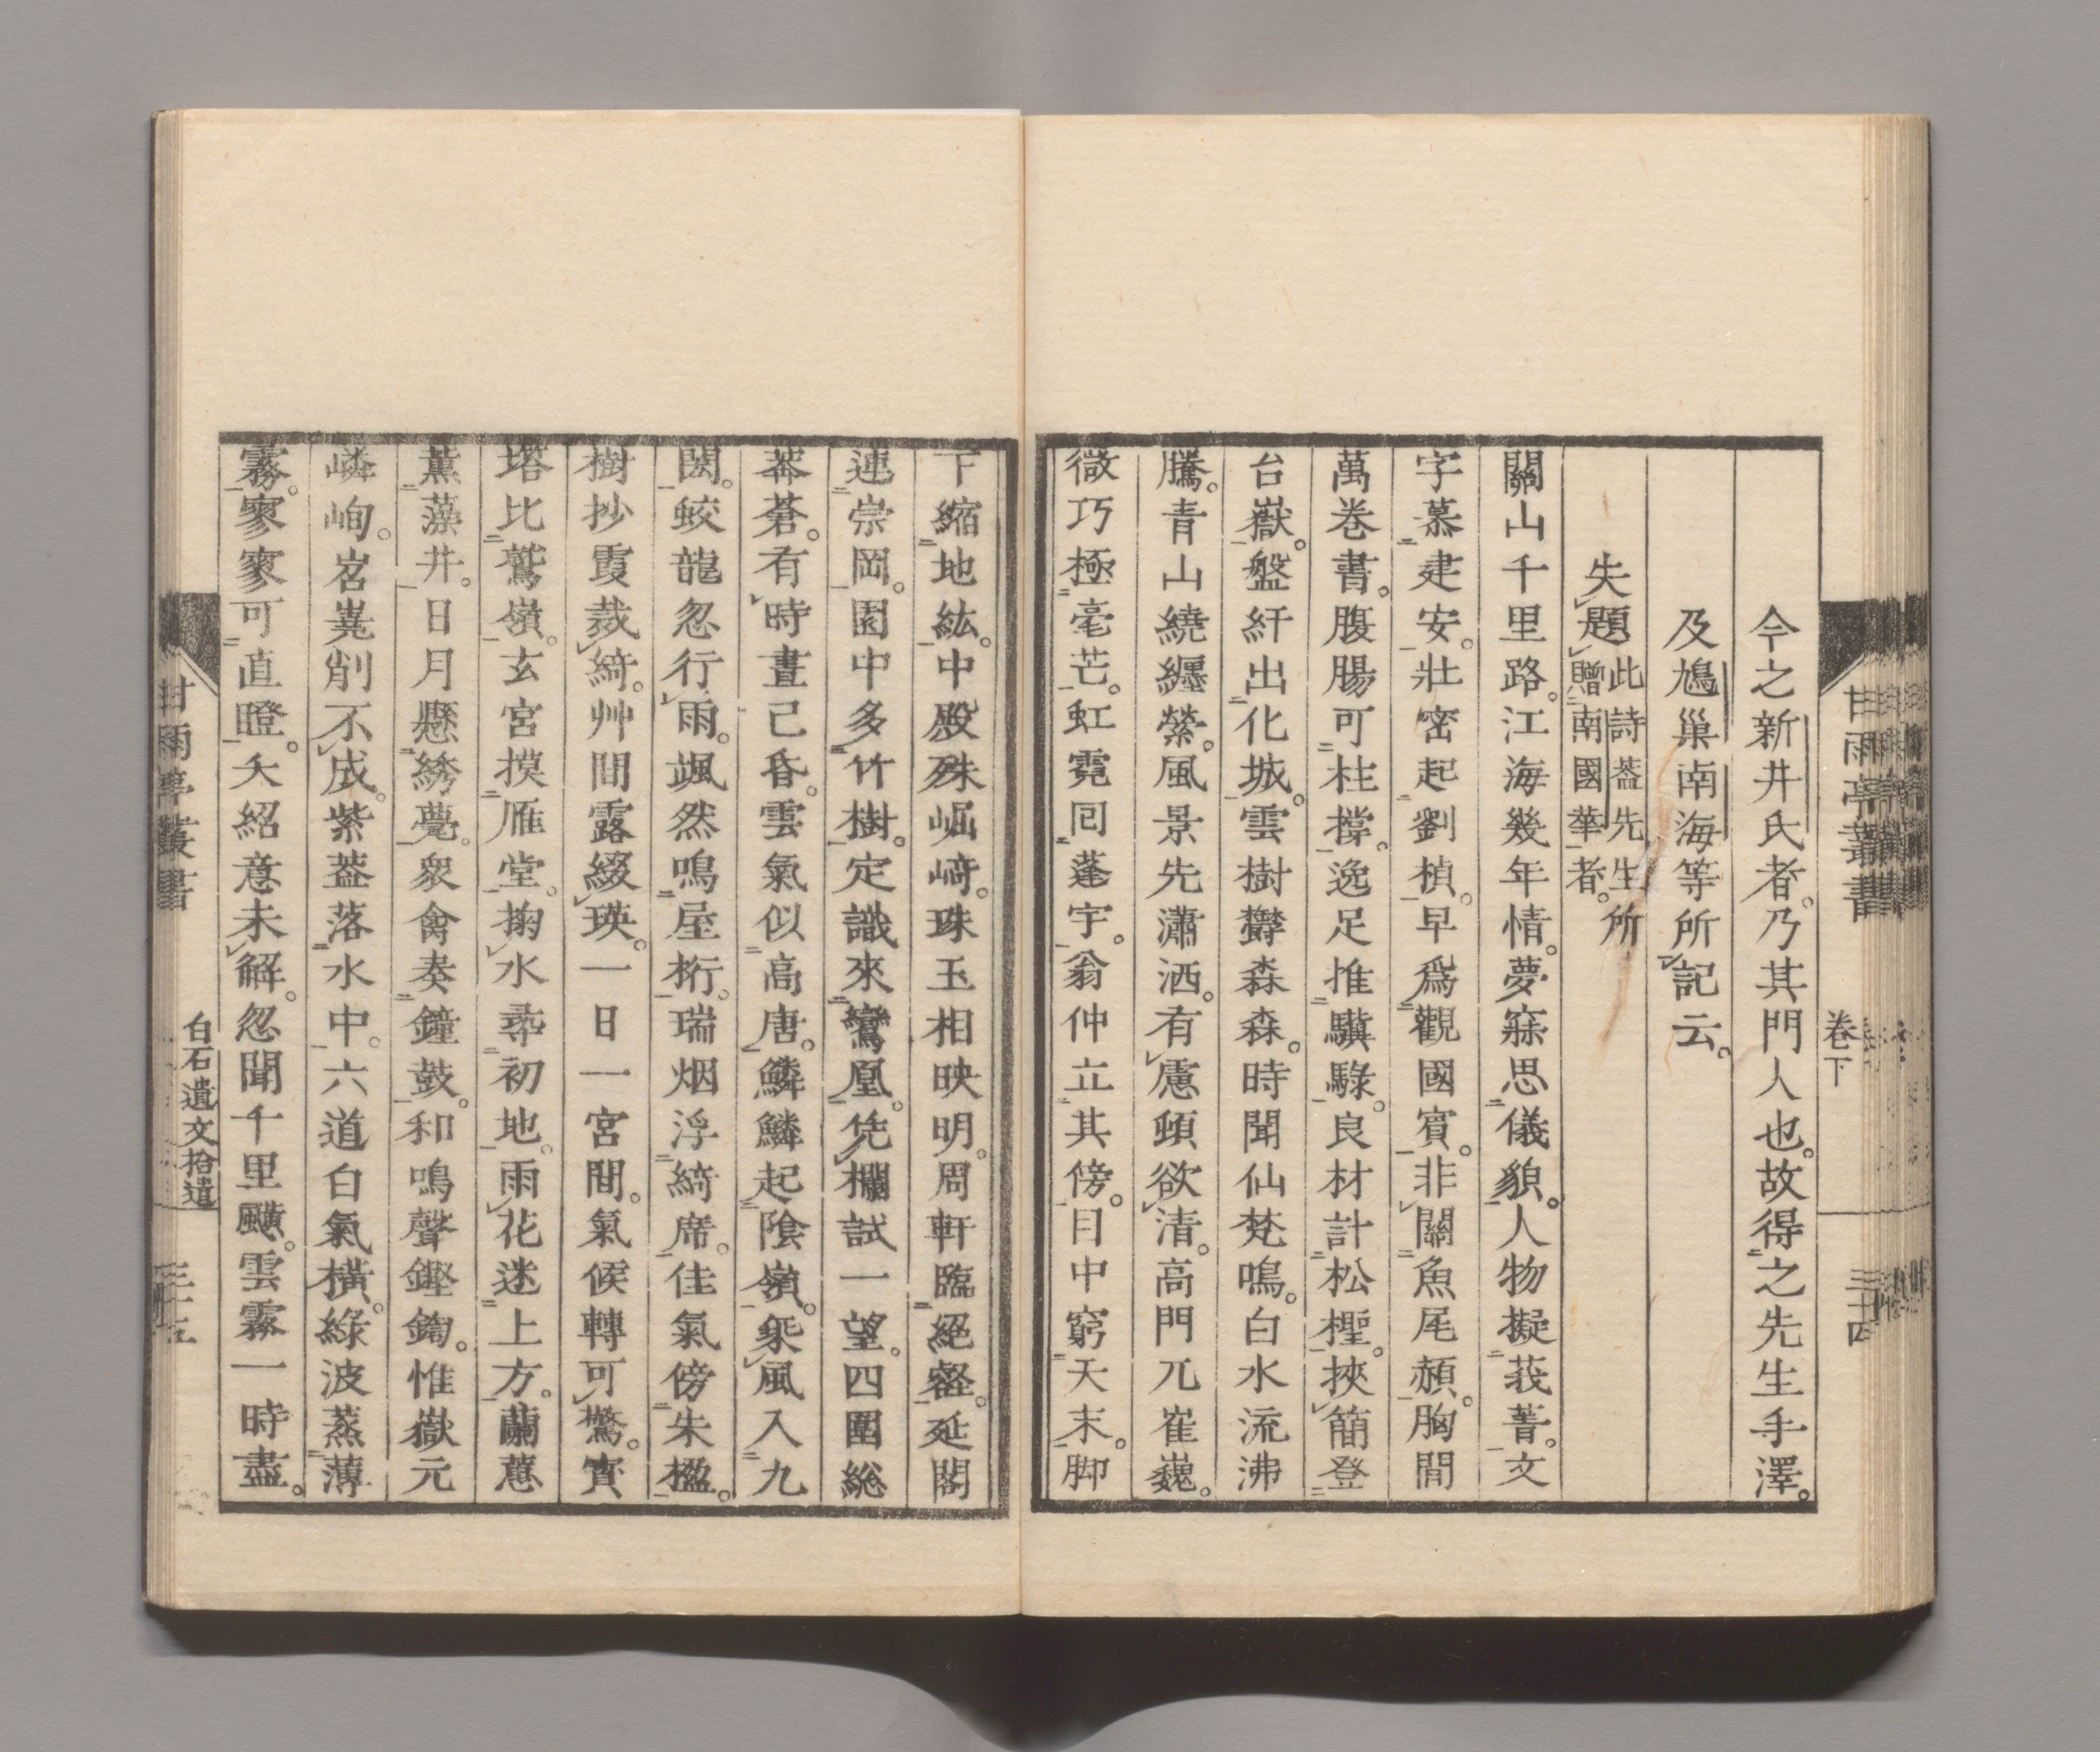 甘雨亭叢書
卷下
三十四
今之新井氏者。乃其門人也。故得之先生手澤。
及鳩巢南海等所記云。
失題
此詩葢先生所
贈南國華者。
關山千里路。江海幾年情。夢寐思儀貌。人物擬莪菁。文
字慕建安。壯密起劉楨。早爲觀國賓。非關魚尾赬。胸間
萬卷書。腹腸可柱撐。逸足推驥騄。良材計松檉。挾簡登
台嶽。盤紆出化城。雲樹欝森森。時聞仙梵鳴。白水流沸
騰。青山繞纒縈。風景先瀟洒。有慮頓欲清。高門兀崔巍。
微巧極毫芒。虹霓囘蓬宇。翁仲立其傍。目中窮天末。脚
下縮地紘。中殿殊崛﨑。珠玉相映明。周軒臨絕壑。延閣
連崇岡。園中多竹樹。定識來鸞凰。凭欄試一望。四圍総
莽蒼。有時晝已昏。雲氣似高唐。鱗鱗起陰嶺。乘風入九
閡。蛟龍忽行雨。颯然鳴屋桁。瑞烟浮綺席。佳氣傍朱楹。
樹抄霞裁綺。艸間露綴瑛。一日一宮間。氣候轉可驚。寳
塔比鷲嶺。玄宮摸雁堂。掬水尋初地。雨花迷上方。蘭蕙
薰藻井。日月懸綉甍。衆禽奏鐘鼓。和鳴聲鏗鍧。惟嶽元
嶙峋。岧嶤削不成。紫葢落水中。六道白氣橫。綠波蒸薄
霧。寥寥可直瞪。大紹意未解。忽聞千里飈。雲霧一時盡。
甘雨亭叢書
白石遺文拾遺
三十五